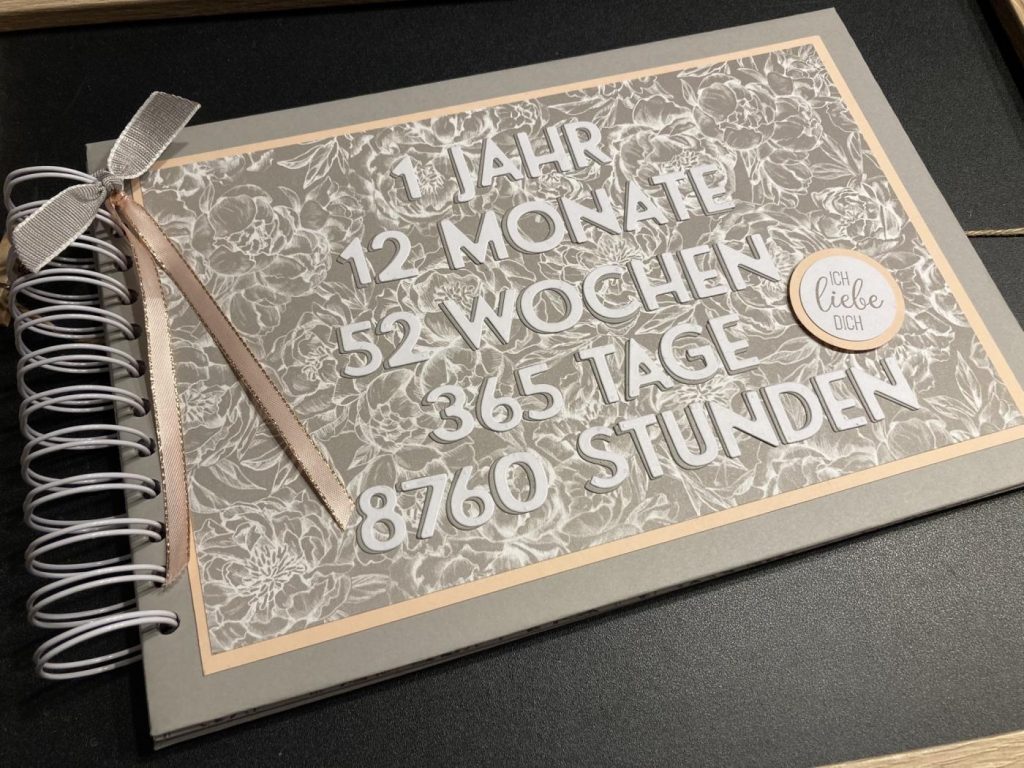 1 JAHR
12 MONATE
52 WOCHEN
365 TAGE
8760 STUNDEN
ICH
liebe
DICH